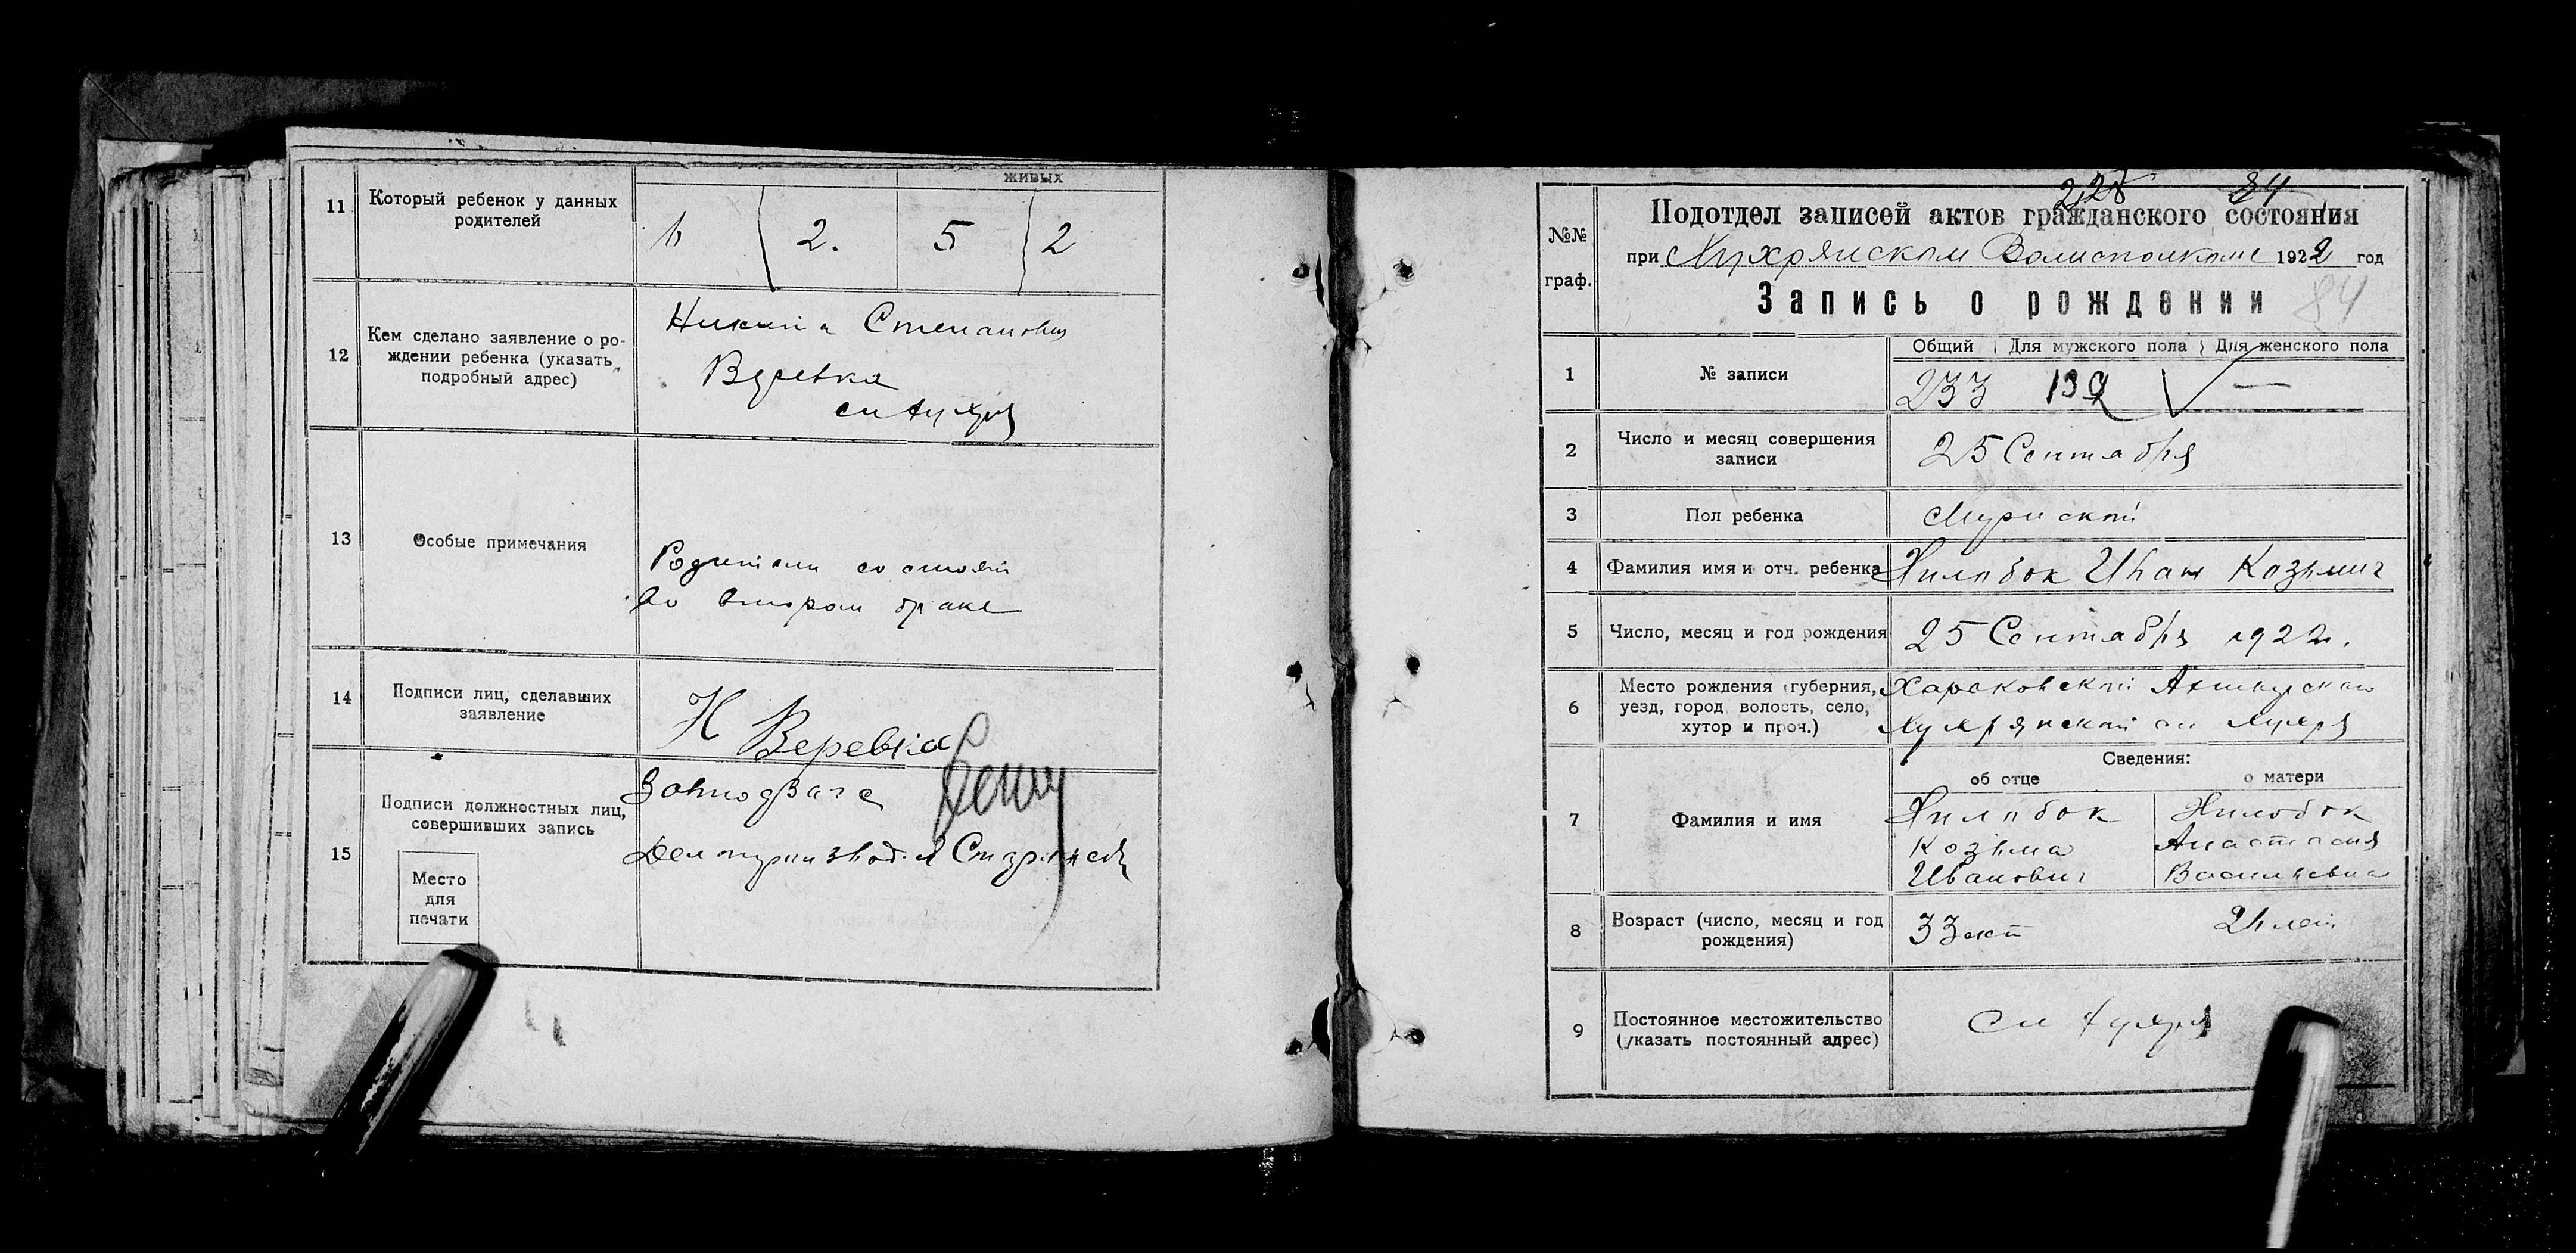 живых
11 Который ребенок у данных
родителей
2. 5 2
12 Кем сделано заявление о ро-
ждении ребенка (указать
подробный адрес)
Никита Степанович
Веревка
13 Особые примечания
Родители состоят
во втором браке
14 Подписи лиц, сделавших
заявление
Н Веревка
15 Подписи должностных лиц,
совершивших запись
Завподзагс
Место
для
печати
228 84
№№
граф.
Подотдел записей актов гражданского состояния
при Хухрянском Волисполкоме 1922 год
Запись о рождении 84
Общий Для мужского пола Для женского пола
1 № записи 233 139 —
2 Число и месяц совершения
записи
25 Сентября
3 Пол ребенка Мужской
4 Фамилия имя и отч. ребенка Жилобок Иван Козьмич
5 Число, месяц и год рождения 25 Сентября 1922.
6 Место рождения (губерния,
уезд, город, волость, село,
хутор и проч.)
Харьковской Ахтырского
Хухрянской сл Хухря
Сведения:
об отце о матери
7 Фамилия и имя
Жилобок Жилобок
Козьма Анастасия
Иванович Васильевна
8 Возраст (число, месяц и год
рождения)
33 лет лет
9 Постоянное местожительство
(указать постоянный адрес)
сл Хухря